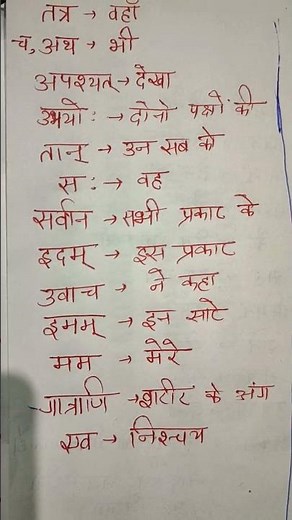 तत्र → वहाँ
च, अथ → भी
अपश्यत् → देखा
उभयोः → दोनो पक्षों की
तान् → उन सब को
सः → वह
सर्वान → सभी प्रकार के
इदम् → इस प्रकार
उवाच → ने कहा
इमम् → इन सारे
मम → मेरे
गात्राणि → शरीर के अंग
एव → निश्चय